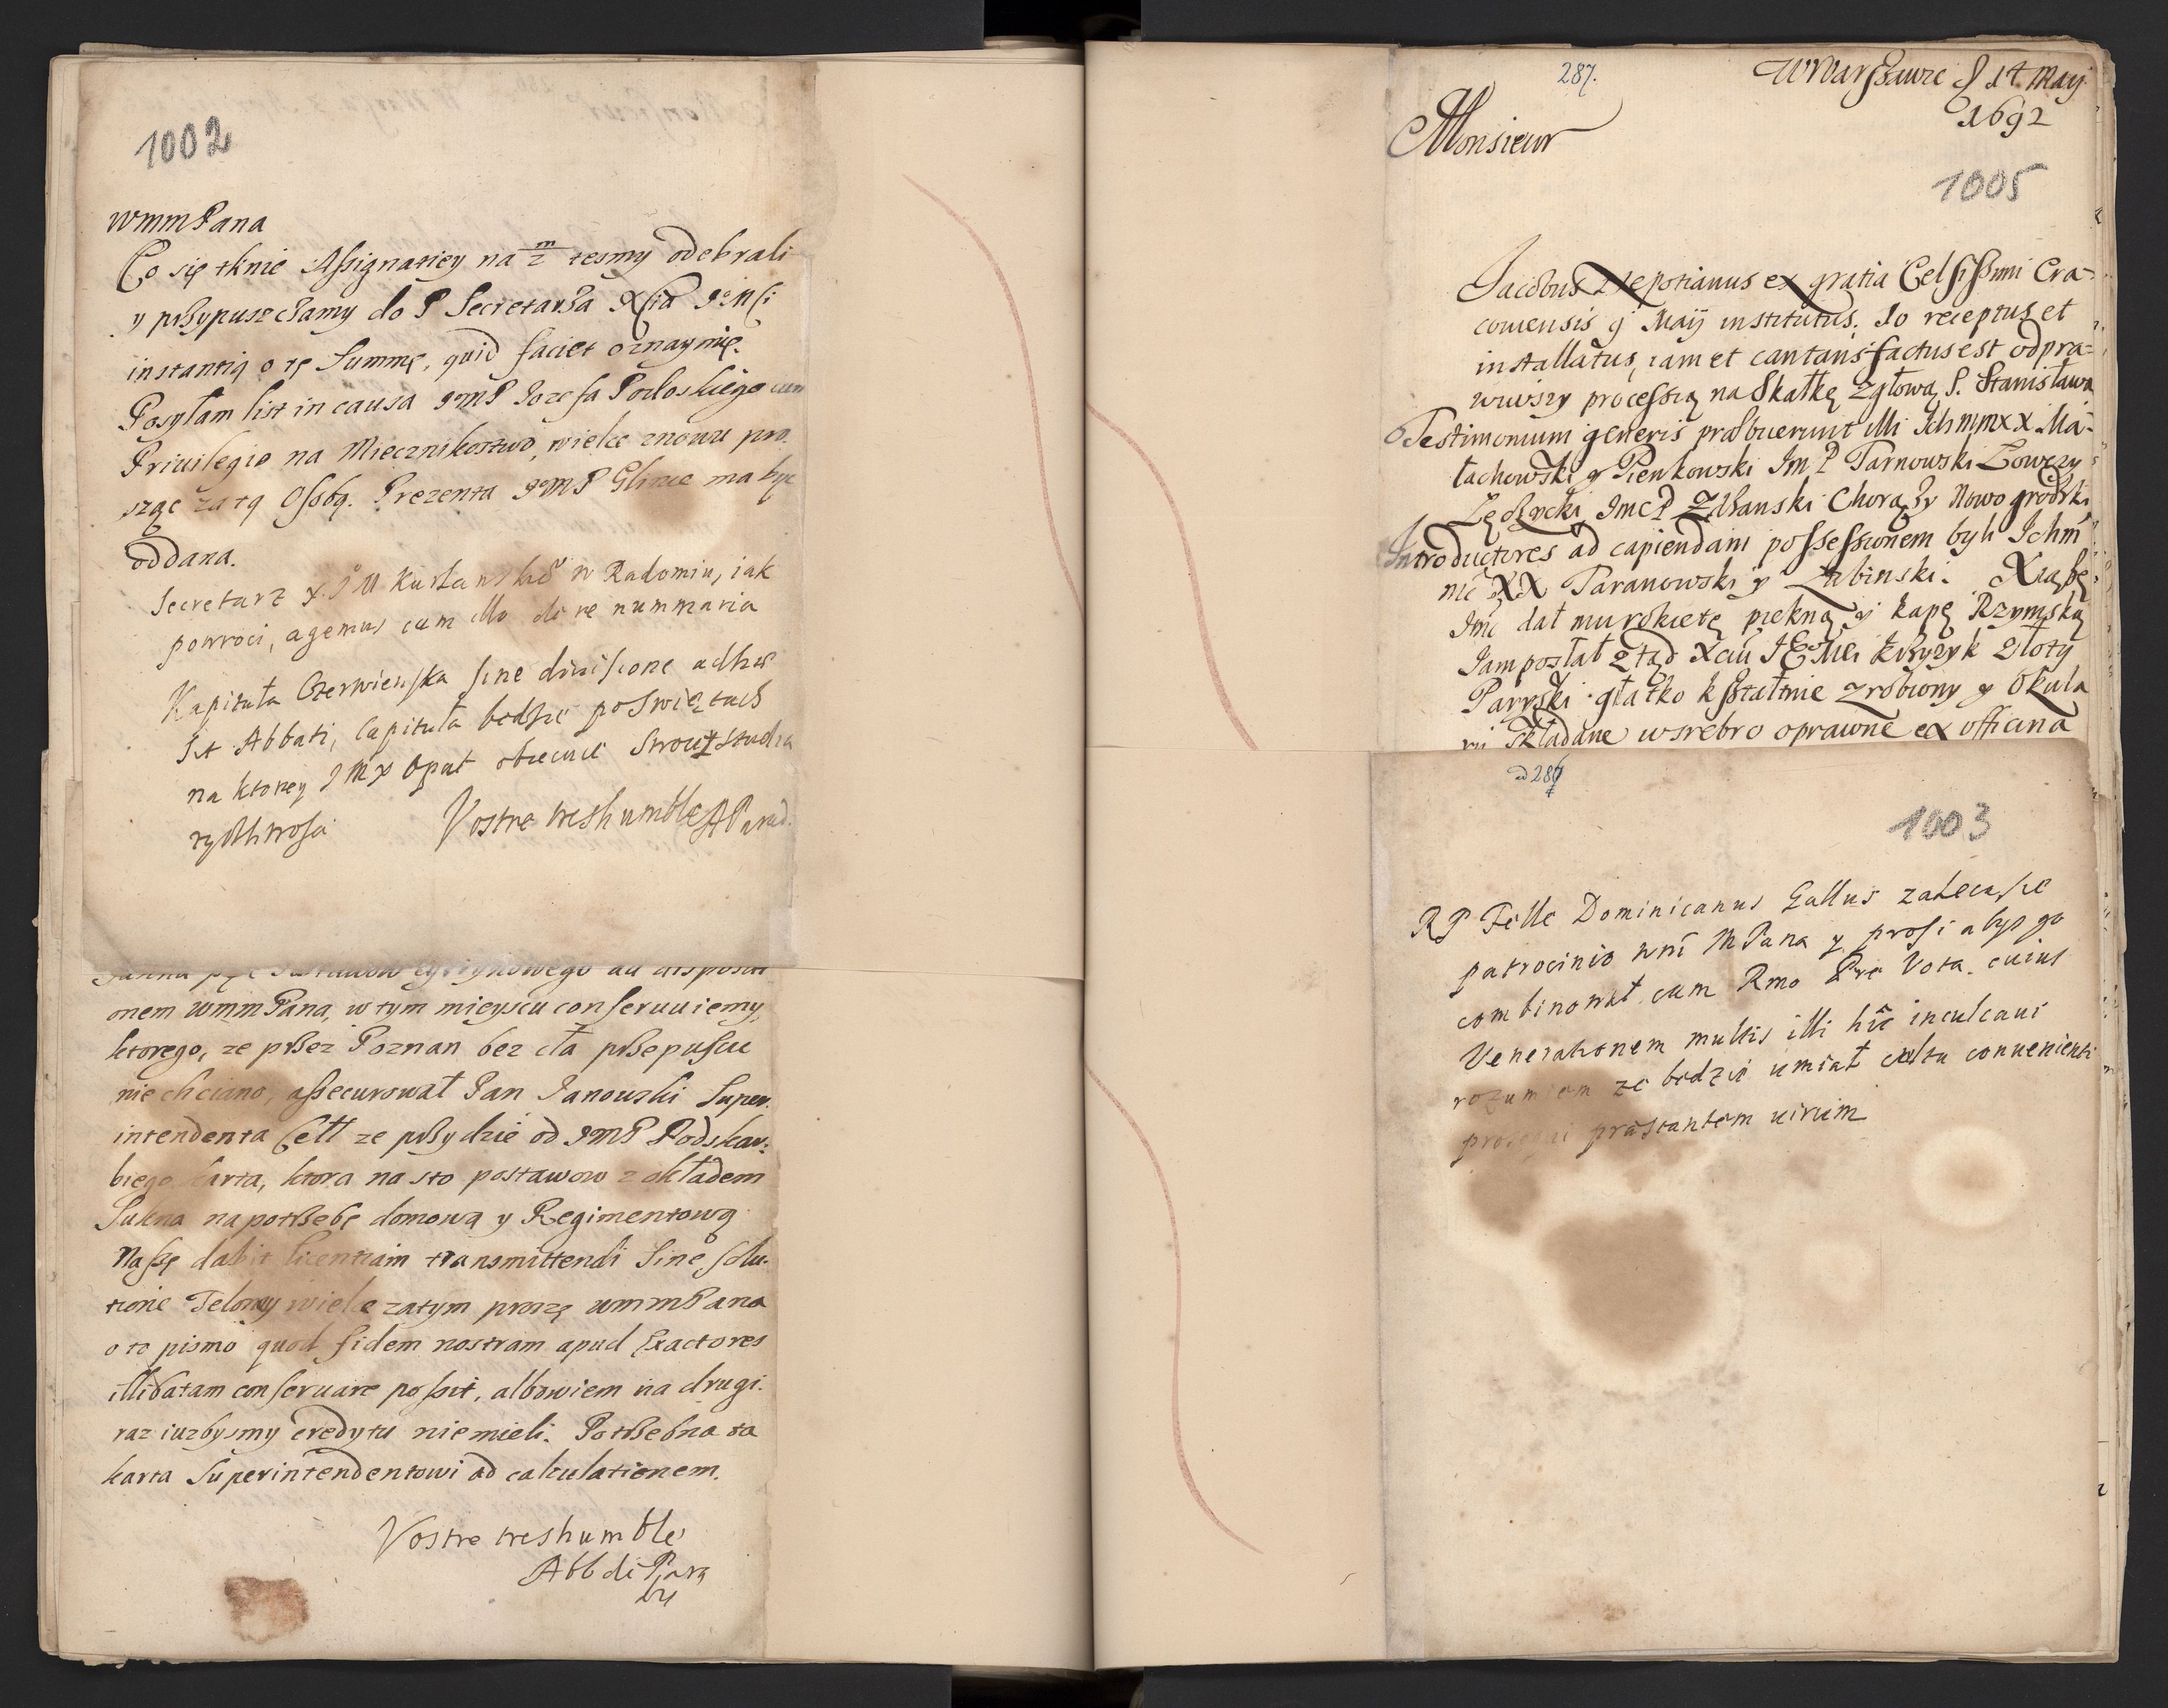 1002
WMMPana
Co się tknie Assignatiey na m/2 tesmy odebrali
y przypuszczamy do P Secretarza Xcia JmSci
instantią o tę Summę, quid faciet oznaymię.
Posyłam list in causa JoMP Jozefa Podoskiego cum
Priuilegio na Miecznikostwo, wielce znowu pro-
sząc za tą Osobą. Prezenta JoMP Glince ma byc
oddana.
Secretarz X JM w Radomiu, iak
powroci, agemus cum illo de re nummaria
Kapituła Czerwienska sine diuisione adhuc
Jest Abbati, Capituła bedzie po Swiętach
na ktorey JMX Opat obiecuie
Vostre treshumble
onem WMMPana, w tym mieyscu conseruuiemy,
ktorego, ze przez Poznan bez cła przepuscic
nie chciano, assecurował Pan Janowski Super-
intendenta Cell ze przydzie od JMP Podskar-
biego karta, ktora na sto postawow z okładem
Sukna na potrzebę domową y Regimentową
Naszę dabit licentiam transmittendi Sine solu-
tione Teloney wielce zatym proszę WMMPana
o to pismo quod fidem nostram apud Exactores
illibatam conseruare possit, albowiem na drugi
raz iuzbysmy credytu niemieli. Potrzebna ta
karta Superintendentowi ad calculationem.
Vostre treshumble
Abb di Para
287.
W Warszawie d 14 Maij
1692
Monsieur
1005
Jacobus Nepotianus ex gratia Celsissimi Cra-
couiensis 9 Maij institutus. 10 receptus et
installatus, iam et cantans factus est odpra-
wiwszy processią na Skałkę z głową S. Stanisława
Testimonium generis præbuerunt illi Ichmmxx Ma-
łachowski y Pienkowski Im P Tarnowski Łowczy
Łęczycki Imc P Zdzanski Chorązy Nowogrodzki
Introductores ad capiendam possessionem byli Ichm
mc XX Taranowski y Zubinski. Xiąze
Imc dał murckietę piękną y kapę Rzymską
Iam posłał ztąd Xciu JEoMci krzyzyk złoty
Paryski gładko kształtnie zrobiony y Okula
ry składane w srebro oprawne ex officina
ad 287
1003
RP Felle Dominicanus Gallus zaleca sie
patrocinio Wm MPana y prosi abys go
combinował cum Rmo Pre Vota. cuius
Venerationem multis illi hic inculcaui
rozumiem ze bedzie umiał cultu conuenienti
prosequi præstantem uirum